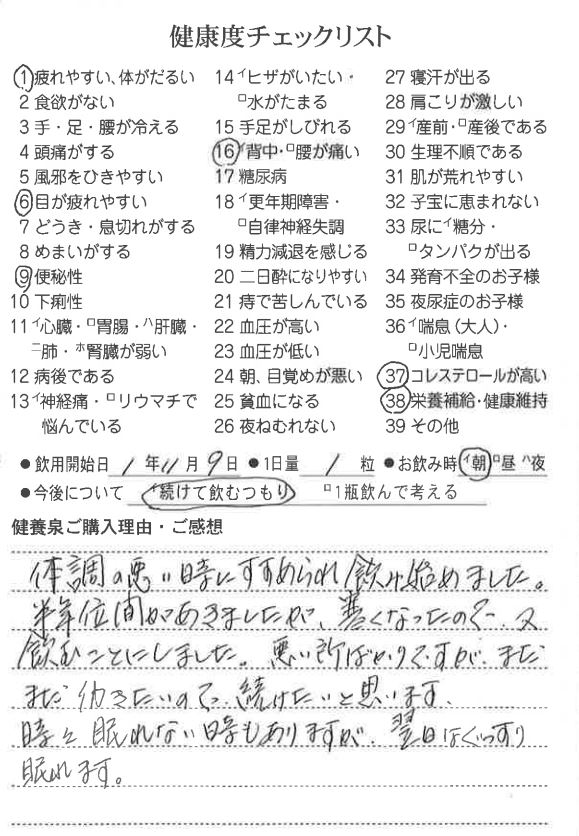 健康度チェックリスト
1 疲れやすい、体がだるい
2 食欲がない
3 手・足・腰が冷える
4 頭痛がする
5 風邪をひきやすい
6 目が疲れやすい
7 どうき・息切れがする
8 めまいがする
9 便秘性
10 下痢性
11 イ心臓・ロ胃腸・ハ肝臓・
ニ肺・ホ腎臓が弱い
12 病後である
13 イ神経痛・ロリウマチで
悩んでいる
14 イヒザがいたい・
ロ水がたまる
15 手足がしびれる
16 イ背中・ロ腰が痛い
17 糖尿病
18 イ更年期障害・
ロ自律神経失調
19 精力減退を感じる
20 二日酔になりやすい
21 痔で苦しんでいる
22 血圧が高い
23 血圧が低い
24 朝、目覚めが悪い
25 貧血になる
26 夜ねむれない
27 寝汗が出る
28 肩こりが激しい
29 イ産前・ロ産後である
30 生理不順である
31 肌が荒れやすい
32 子宝に恵まれない
33 尿にイ糖分・
ロタンパクが出る
34 発育不全のお子様
35 夜尿症のお子様
36 イ喘息(大人)・
ロ小児喘息
37 コレステロールが高い
38 栄養補給・健康維持
39 その他
●飲用開始日 1年11月9日 ●1日量 1 粒 ●お飲み時 イ朝 ロ昼 ハ夜
●今後について イ続けて飲むつもり ロ1瓶飲んで考える
健養泉ご購入理由・ご感想
体調の悪い時にすすめられ飲み始めました。
半年位間があきましたが、善くなったので、又
飲むことにしました。悪い所ばかりですが、まだ
まだ働きたいので、続けたいと思います。
時々眠れない時もありますが、翌日はぐっすり
眠れます。